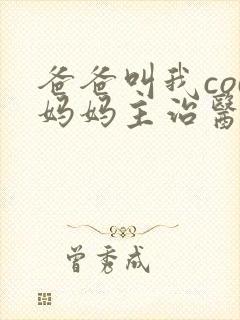 爸爸叫我co
妈妈主治醫
曾秀成